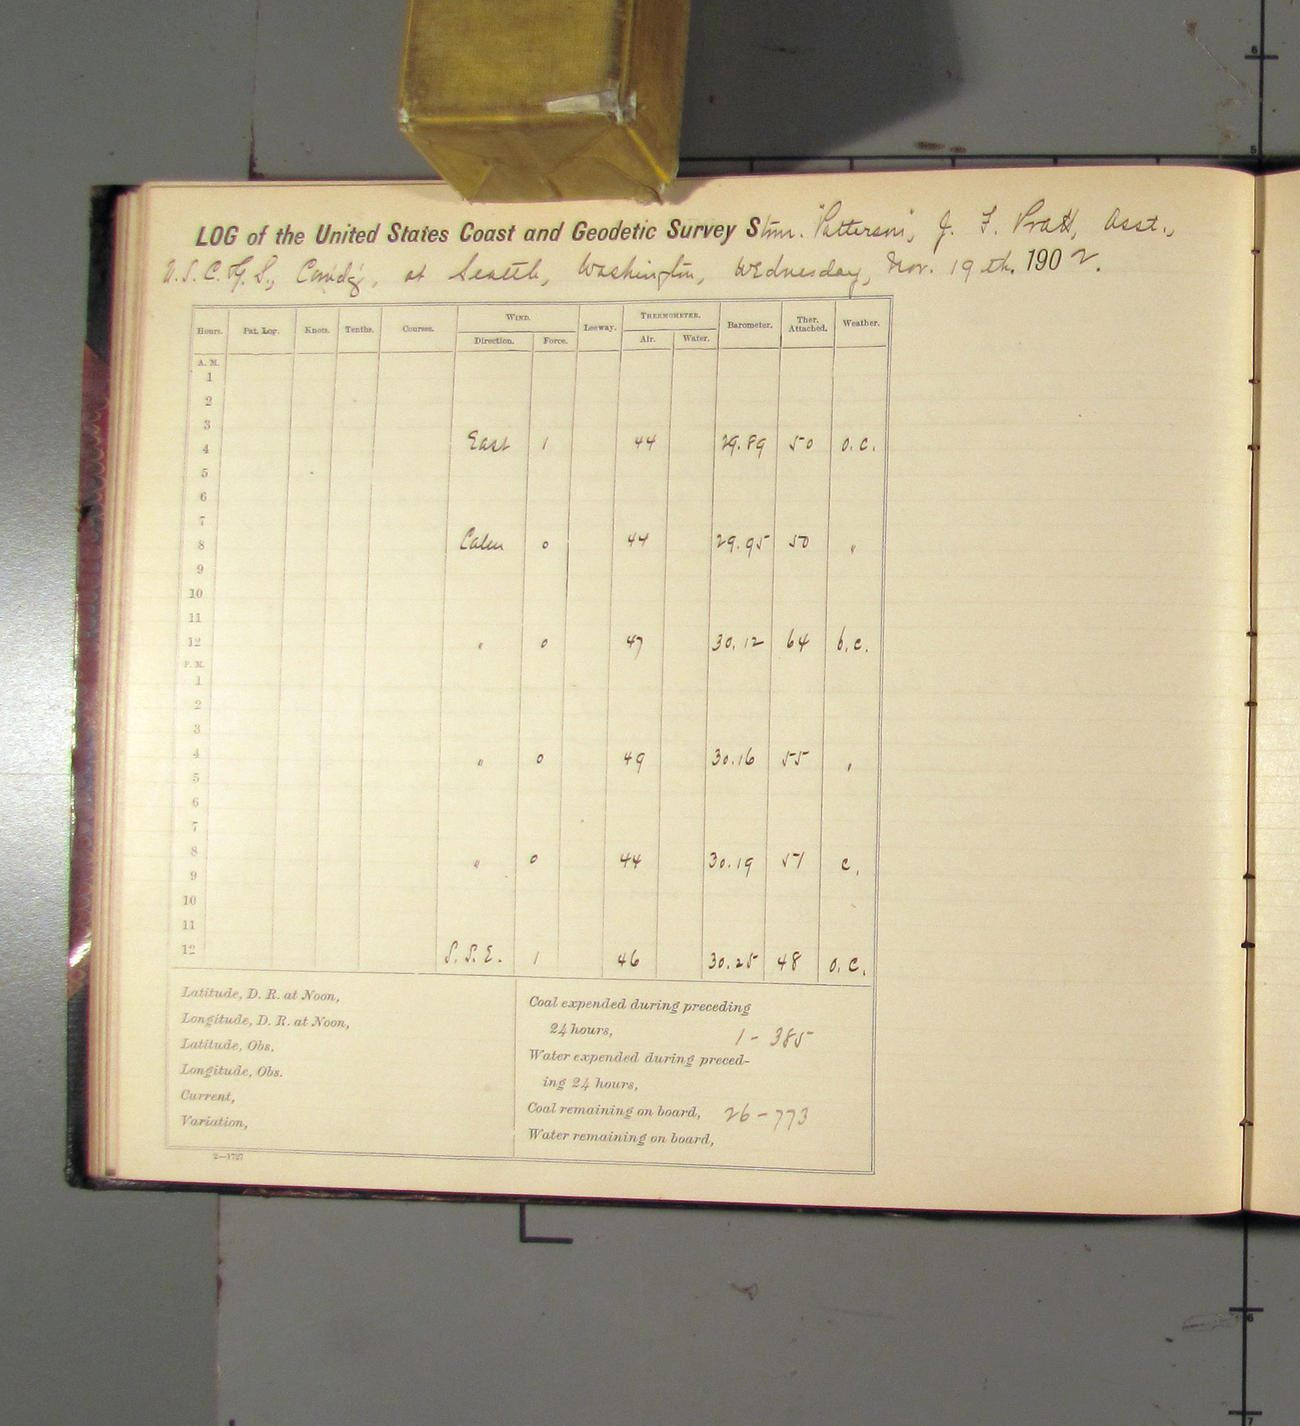 LOG of the United States Coast and Geodetic Survey Stmr. "Patterson", J. F. Pratt, Asst.,
U.S.C.&G.S., Comdg., at Seattle, Washington, Wednesday, Nov. 19th. 1902.
Hours. Pat. Log. Knots. Tenths. Courses. WIND. Leeway. THERMOMETER. Barometer. Ther. Attached. Weather.
Direction. Force. Air. Water.
A. M.
1
2
3
4 East 1 44 29.89 50 o.c.
5
6
7
8 Calm 0 44 29.95 50 "
9
10
11
12 " 0 47 30.12 64 b.c.
P. M.
1
2
3
4 " 0 49 30.16 55 "
5
6
7
8 " 0 44 30.19 51 c.
9
10
11
12 S.S.E. 1 46 30.25 48 o.c.
Latitude, D. R. at Noon,
Longitude, D. R. at Noon,
Latitude, Obs.
Longitude, Obs.
Current,
Variation,
Coal expended during preceding
24 hours, 1-385
Water expended during preced-
ing 24 hours,
Coal remaining on board, 26-773
Water remaining on board,
2—1727
6
5
6
7